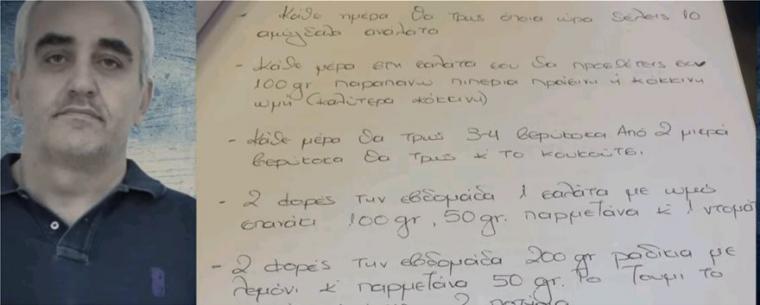 - Κάθε ημέρα θα τρως όποια ώρα θέλεις 10
αμύγδαλα ανάλατα
- Κάθε μέρα στη σαλάτα σου θα προσθέτεις
100 gr παραπάνω πιπεριά πράσινη ή κόκκινη
ωμή (καλύτερα κόκκινη)
- Κάθε μέρα θα τρως 3-4 βερύκοκα. Από 2 μικρά
βερύκοκα θα τρως κ το κουκούτσι.
- 2 φορές την εβδομάδα 1 σαλάτα με ωμό
σπανάκι 100gr, 50gr. παρμεζάνα κ 1 ντομά
- 2 φορές την εβδομάδα 200 gr ραδίκια με
λεμόνι κ παρμεζάνα 50 gr. Το ζουμί το
2